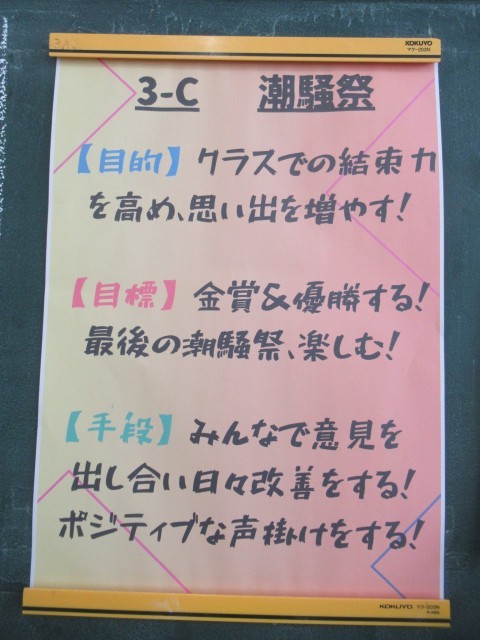 KOKUYO
マク-203N
3-C 潮騒祭
【目的】クラスでの結束力
を高め、思い出を増やす!
【目標】金賞&優勝する!
最後の潮騒祭、楽しむ!
【手段】みんなで意見を
出し合い日々改善をする!
ポジティブな声掛けをする!
KOKUYO マク-203N